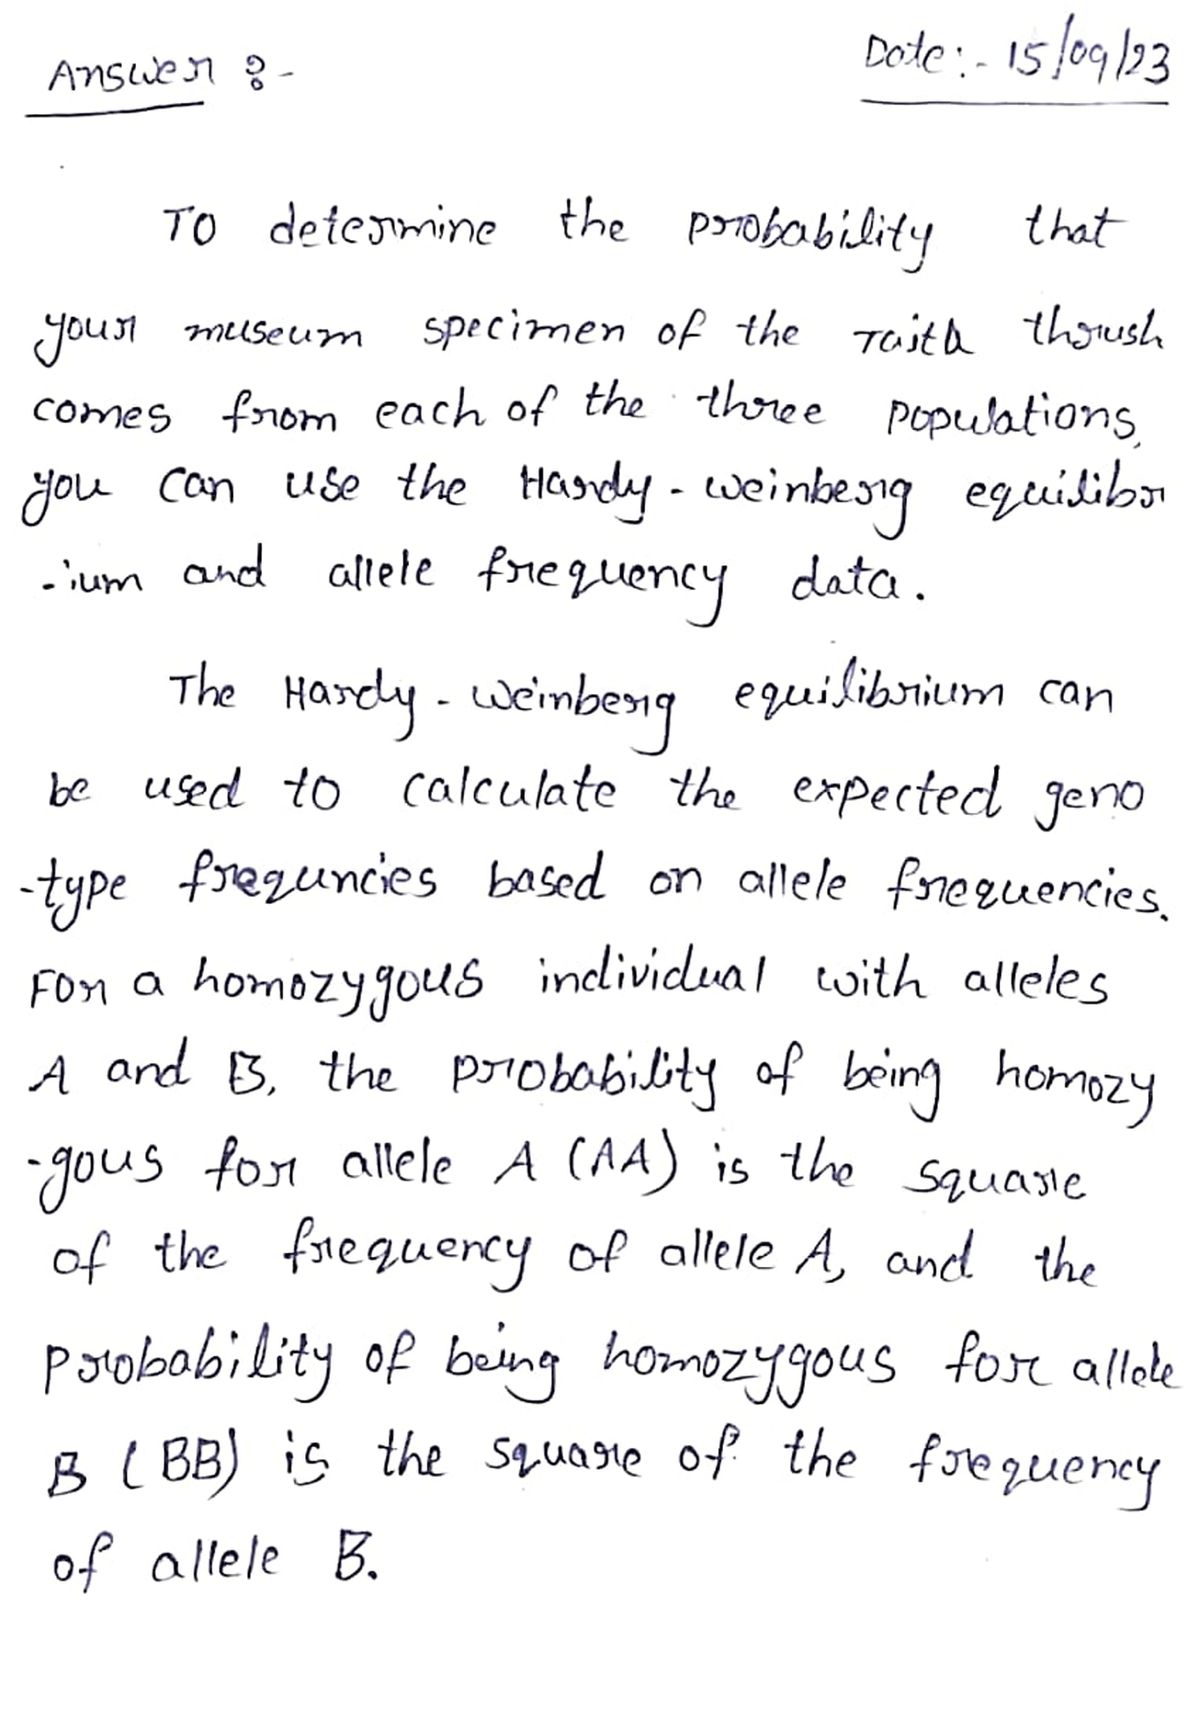 Answer :-
Date :- 15/09/23
To determine the probability that
your museum specimen of the Taita thrush
comes from each of the three populations,
you can use the Hardy-weinberg equilibr
-ium and allele frequency data.
The Hardy-Weinberg equilibrium can
be used to calculate the expected geno
-type frequncies based on allele frequencies.
For a homozygous individual with alleles
A and B, the probability of being homozy
-gous for allele A (AA) is the square
of the frequency of allele A, and the
probability of being homozygous for allele
B (BB) is the square of the frequency
of allele B.